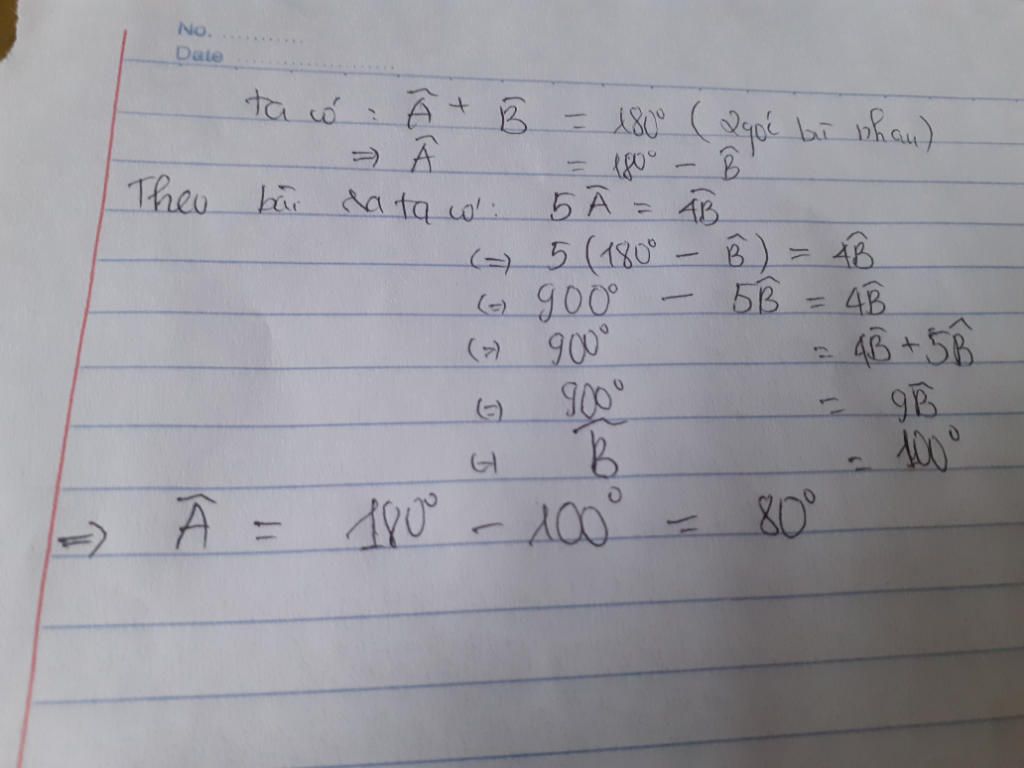 No. ............
Date ......................
ta có : Â + B̂ = 180° ( 2 góc bù nhau)
=> Â = 180° - B̂
Theo bài ra ta có: 5Â = 4B̂
(=) 5 (180° - B̂) = 4B̂
(=) 900° - 5B̂ = 4B̂
(=) 900° = 4B̂ + 5B̂
(=) 900° = 9B̂
(=) B̂ = 100°
=> Â = 180° - 100° = 80°